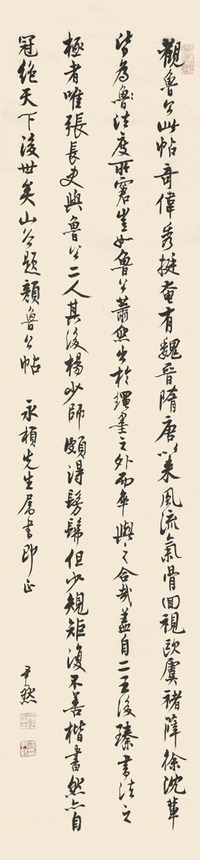 觀魯公此帖奇偉秀挺奄有魏晉隋唐以來風流氣骨回視歐虞褚薛徐沈輩
皆為法度所窘豈如魯公蕭然出於繩墨之外而卒與之合哉蓋自二王後臻書法之
極者唯張長史與魯公二人其後楊少師頗得髣髴但少規矩復不善楷書然亦自
冠絕天下後世矣山谷題顏魯公帖 永楨先生屬書即正
尹默